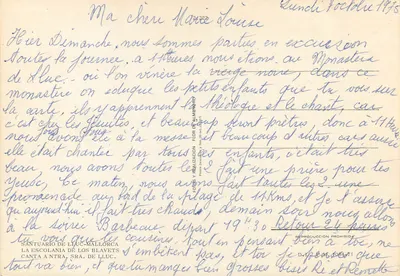 Lundi 8 octobre 1973
Ma chère Marie Louise
Hier Dimanche, nous sommes parties en excursion
toutes la journée, a 11 heures nous étions au Monastère
de Lluc où l'on vénère la vierge noire, dans ce
monastère on éduque les petits enfants que tu vois sur
la carte, ils y apprennent la théologie et le chant, car
c'est chez les Jésuites, et beaucoup seront prêtres, donc à 11 heures
nous avons été à la messe et beaucoup d'autres cars aussi
elle était chantée par tous ses enfants, c'était très
beau, nous avons toutes les 2 fait une prière pour tes
yeux, Ce matin, nous avons fait toutes les 2 une
promenade au bord de la plage de kms, et je t'assure
qu'aujourd'hui il fait très chaud, demain soir nous allons
à la soirée Barbecue, départ 19h30 retour 24 heures
tu vois, tes cousines tout en pensant bien à toi, ne
SANTUARIO DE LLUC-MALLORCA
s'embêtent pas, et toi je pense que
LA ESCOLANIA DE LOS BLAVETS
CANTA A NTRA. SRA. DE LLUC.
tout va bien, et que tu manges bien grosses bises de et Renée